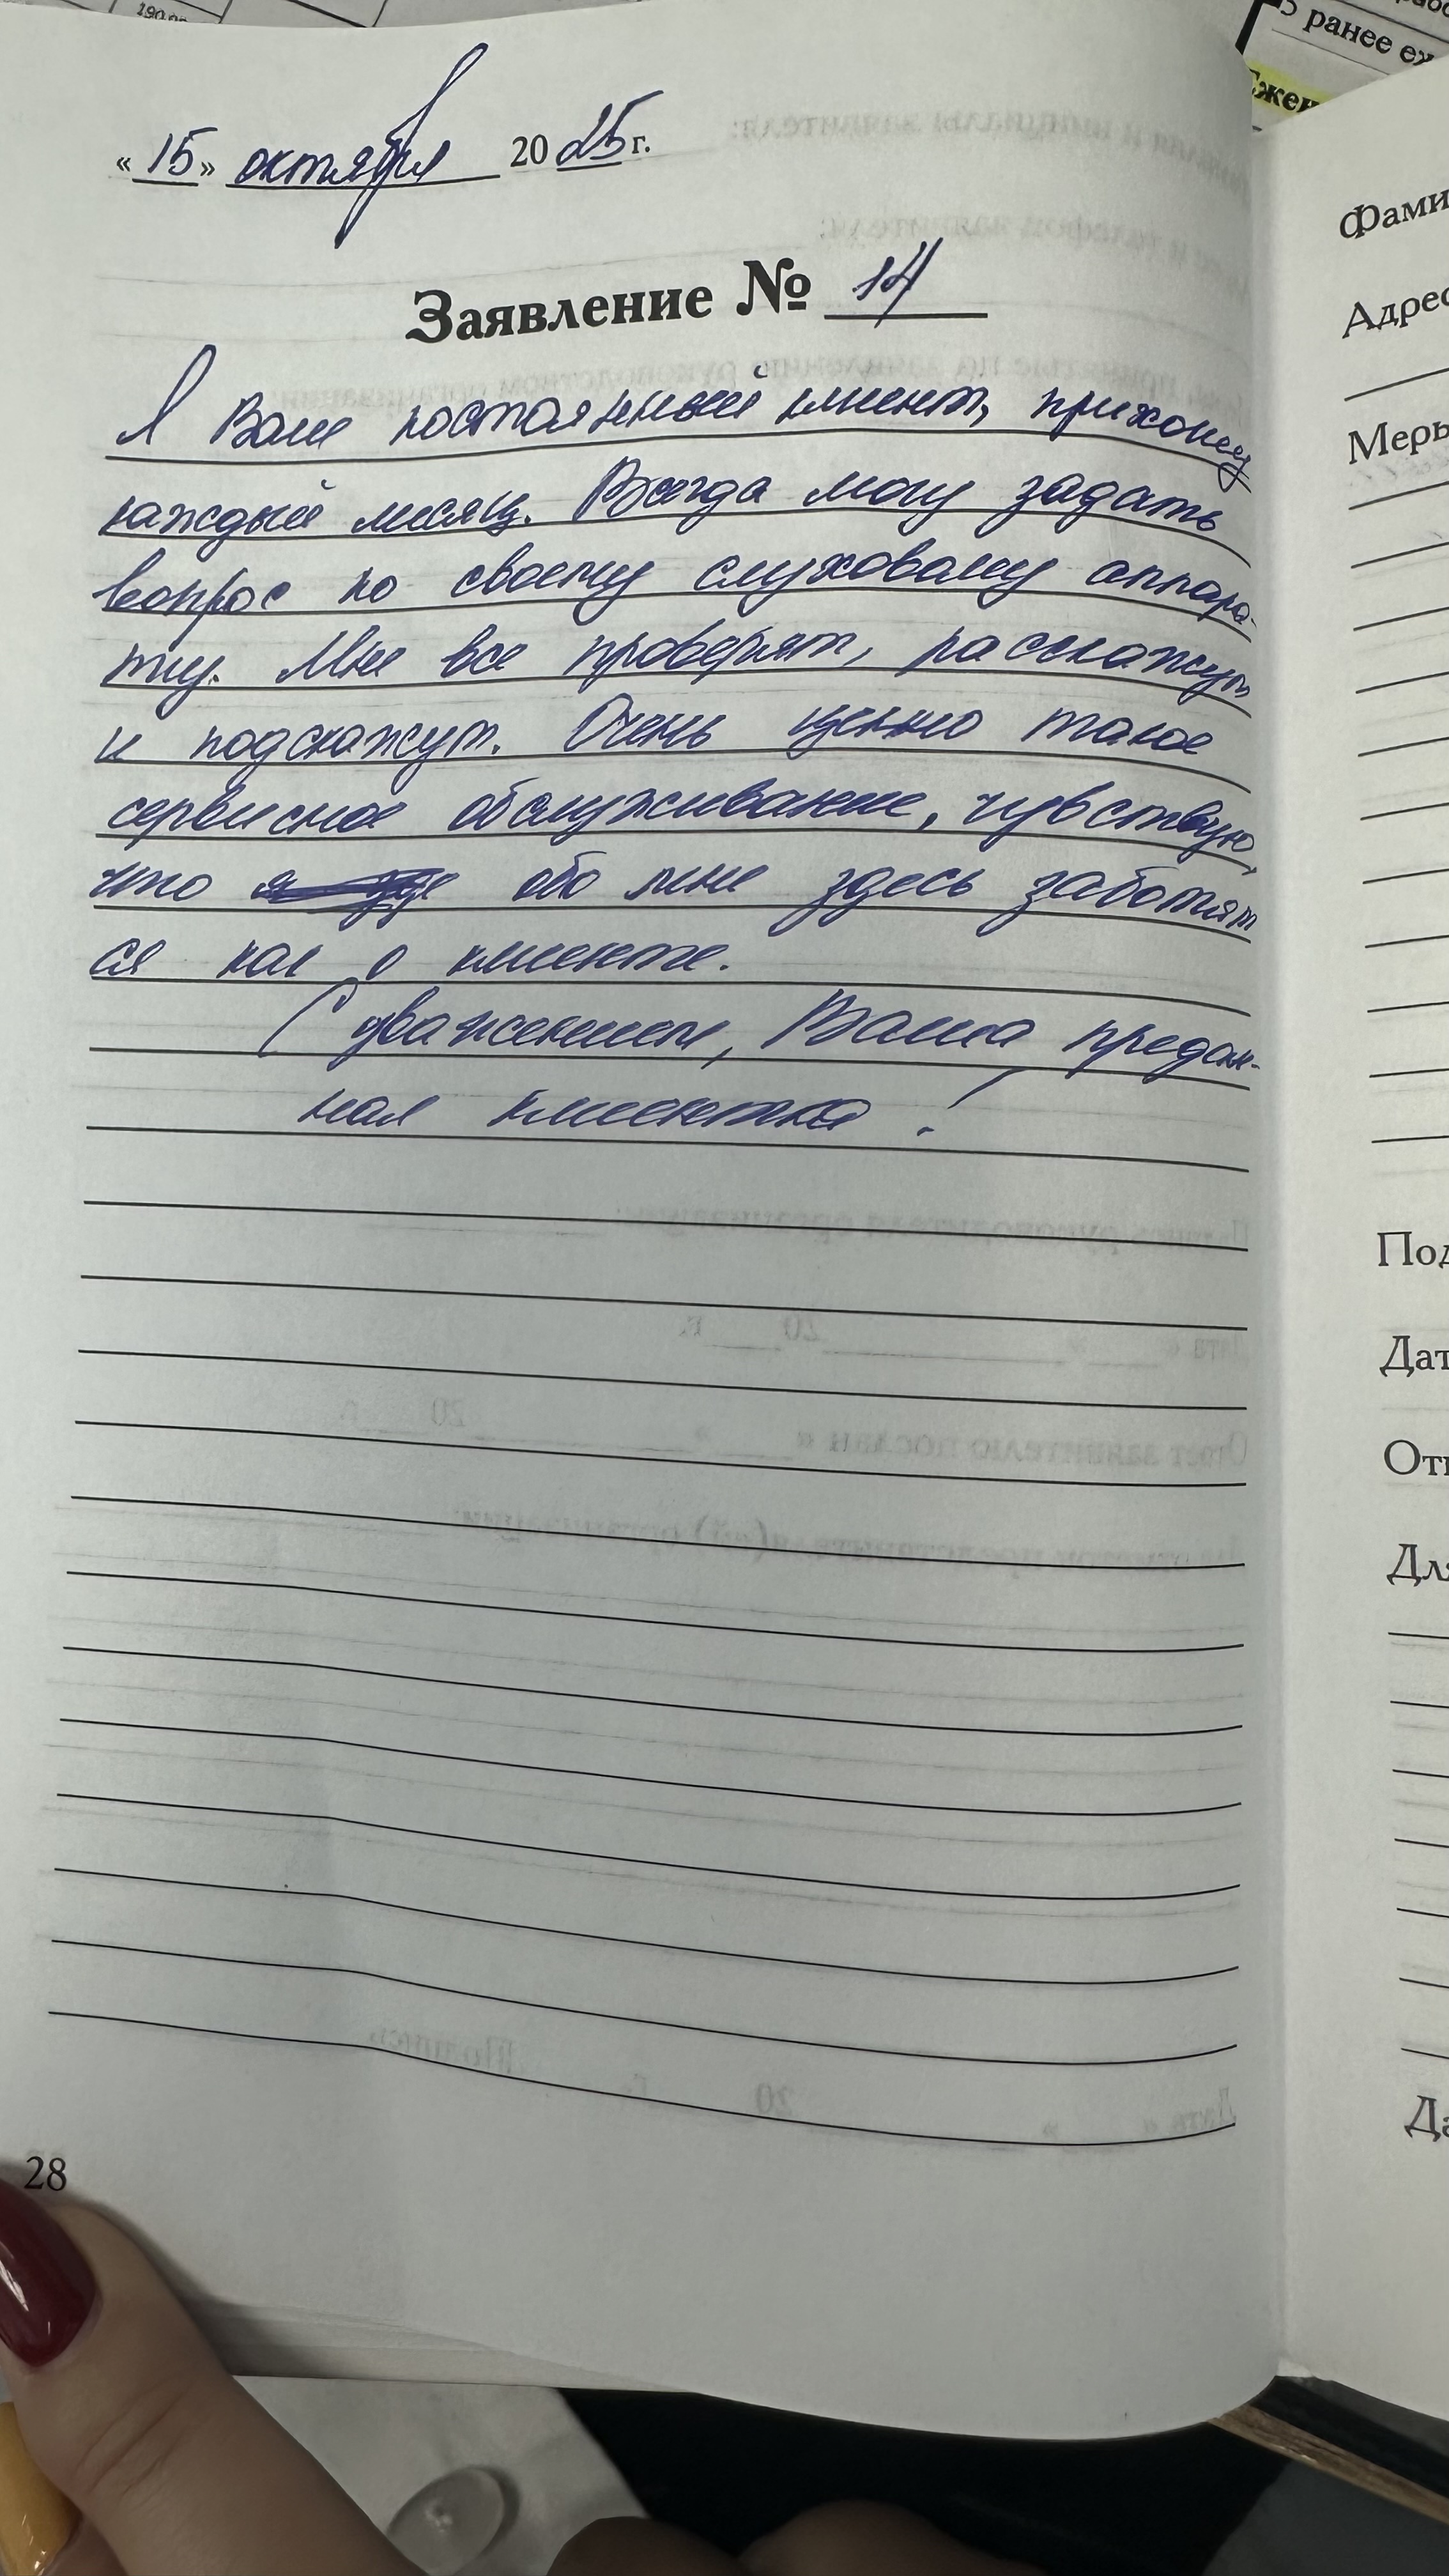 190,00
5 ранее еж
Ежен
«15» октября 2025 г.
Заявление № 14
Я Ваш постоянный клиент, прихожу
каждый месяц. Всегда могу задать
вопрос по своему слуховому аппара-
ту. Мне все проверят, расскажут
и подскажут. Очень ценно такое
сервисное обслуживание, чувствую,
что обо мне здесь заботят
ся как о клиенте.
С уважением, Ваша предан-
ная клиентка!
28
Фами
Адрес
Меры
Под
Дат
Отв
Для
Да